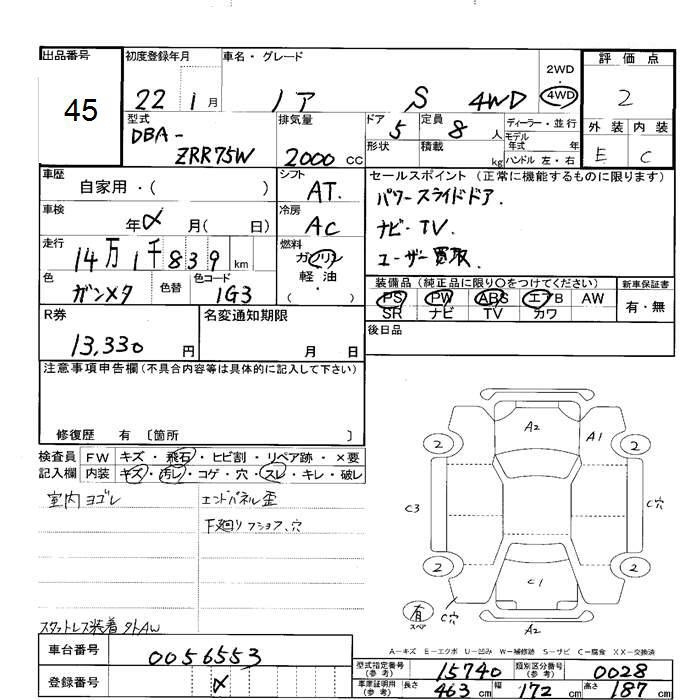 出品番号 初度登録年月 車名・グレード 2WD ・ 4WD 評価点
45 22 1月 ノア S 4WD 2
型式 排気量 ドア 定員 ディーラー・並行 外装 内装
DBA- ZRR75W 2000 CC 5 8人 モデル年式 年 E C
形状 積載 kg ハンドル 左・右
車歴 シフト セールスポイント (正常に機能するものに限ります)
自家用・( ) AT. パワースライドドア.
車検 冷房 ナビ・TV.
年 月( 日) AC ユーザー買取.
走行 燃料
14万1千839km ガソリン
色 色替 色コード 軽・油
ガンメタ 1G3 ( )
装備品 (純正品に限り○をつけてください) 新車保証書
PS PW ABS エアB AW 有・無
SR ナビ TV カワ
R券 名変通知期限 後日品
13,330円 月 日
注意事項申告欄 (不具合内容等は具体的に記入して下さい)
修復歴 有 〔箇所 〕
検査員 FW キズ・飛石・ヒビ割・リペア跡・×要
記入欄 内装 キズ・汚レ・コゲ・穴・スレ・キレ・破レ
室内ヨゴレ エンドパネル歪
下廻リフショア、穴
スタットレス装着 外AW
A2 A1
2 2
C3 C穴
2 2
C1
有 スペア C穴
A2
A-キズ E-エクボ U-凹み W-補修跡 S-サビ C-腐食 XX-交換済
車台番号 0056553
登録番号
型式指定番号(参考) 15740 類別区分番号(参考) 0028
車庫証明用(参考) 長さ 463cm 幅 172cm 高さ 187cm